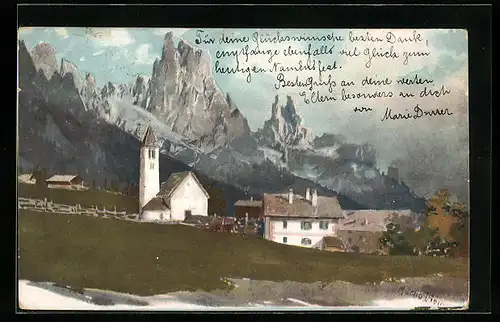 Für deine Glückswünsche besten Dank,
empfange ebenfalls viel Glück zum
heutigen Namensfest.
Besten Gruß an deine werten
Eltern besonders an dich
von
Marie Durrer